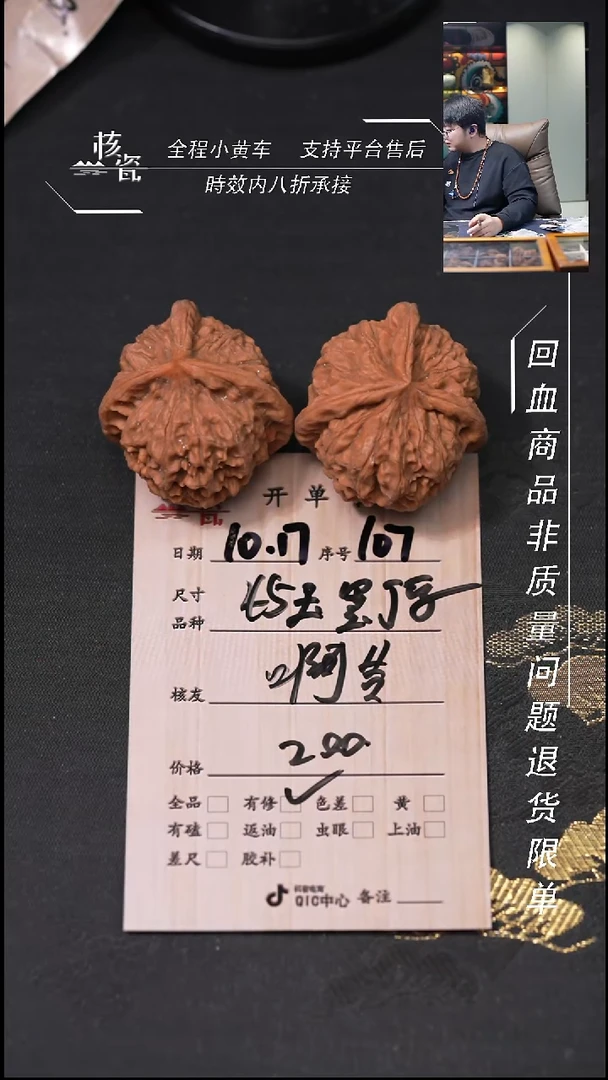 核瓷
全程小黄车 支持平台售后
時效内八折承接
回血商品非质量问题退货限单
开单
日期 10.17 序号 107
尺寸
品种
核友
价格 200.
全品 有修 色差 黄
有磕 返油 虫眼 上油
差尺 胶补
抖音电商
QIC中心 备注